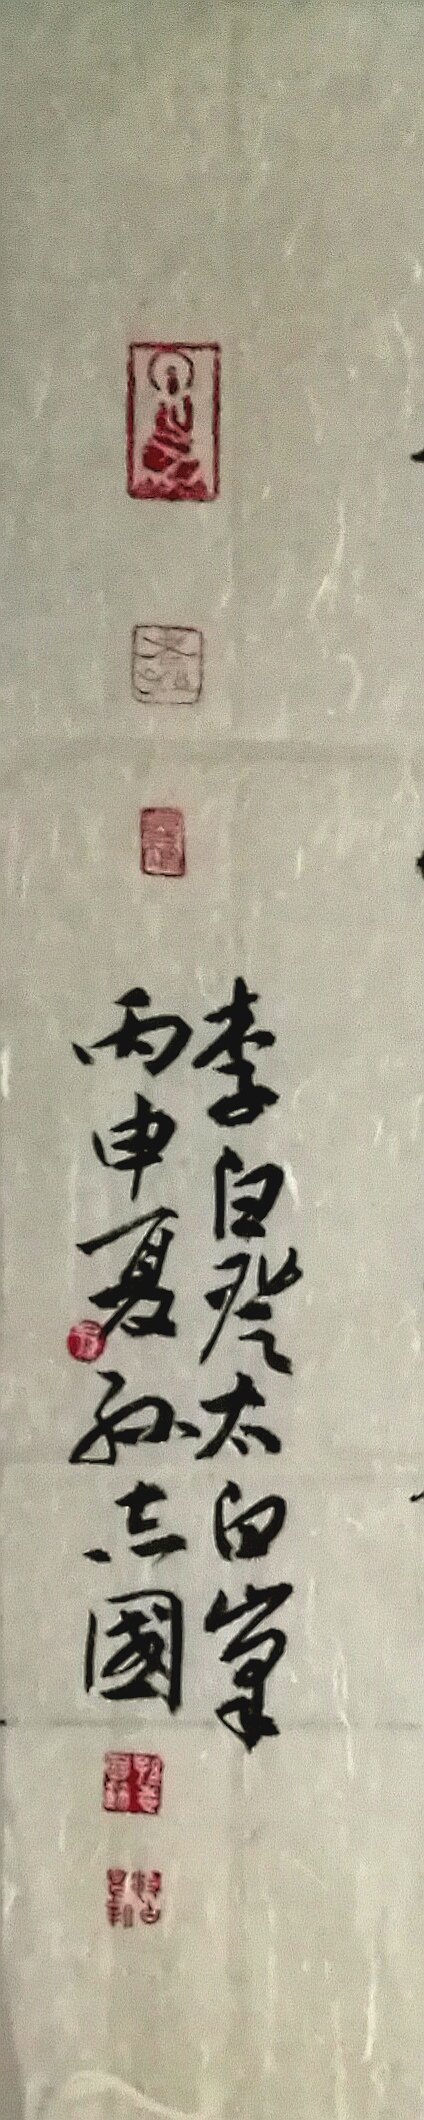 李白登太白峯
丙申夏孙志國